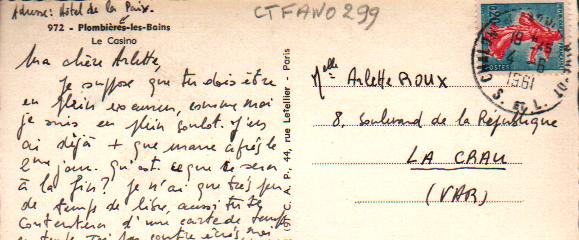 Adresse: Hôtel de la Paix.
CTFANO299
972 - Plombières-les-Bains
Le Casino
Ma chère Arlette,
Je suppose que tu dois être
en plein examen, comme moi
je suis en plein boulot. J'en
ai déjà + que marre après le
2ème jour. Qu'est-ce que ce sera
à la fin? Je n'ai que très peu
de temps de libre, aussi tu te
contenteras d'une carte de temps
en temps.
C. A. P., 44, rue Letellier - Paris
POSTES
1961
S. ET L.
Melle Arlette ROUX
8, boulevard de la République
LA CRAU
(VAR)